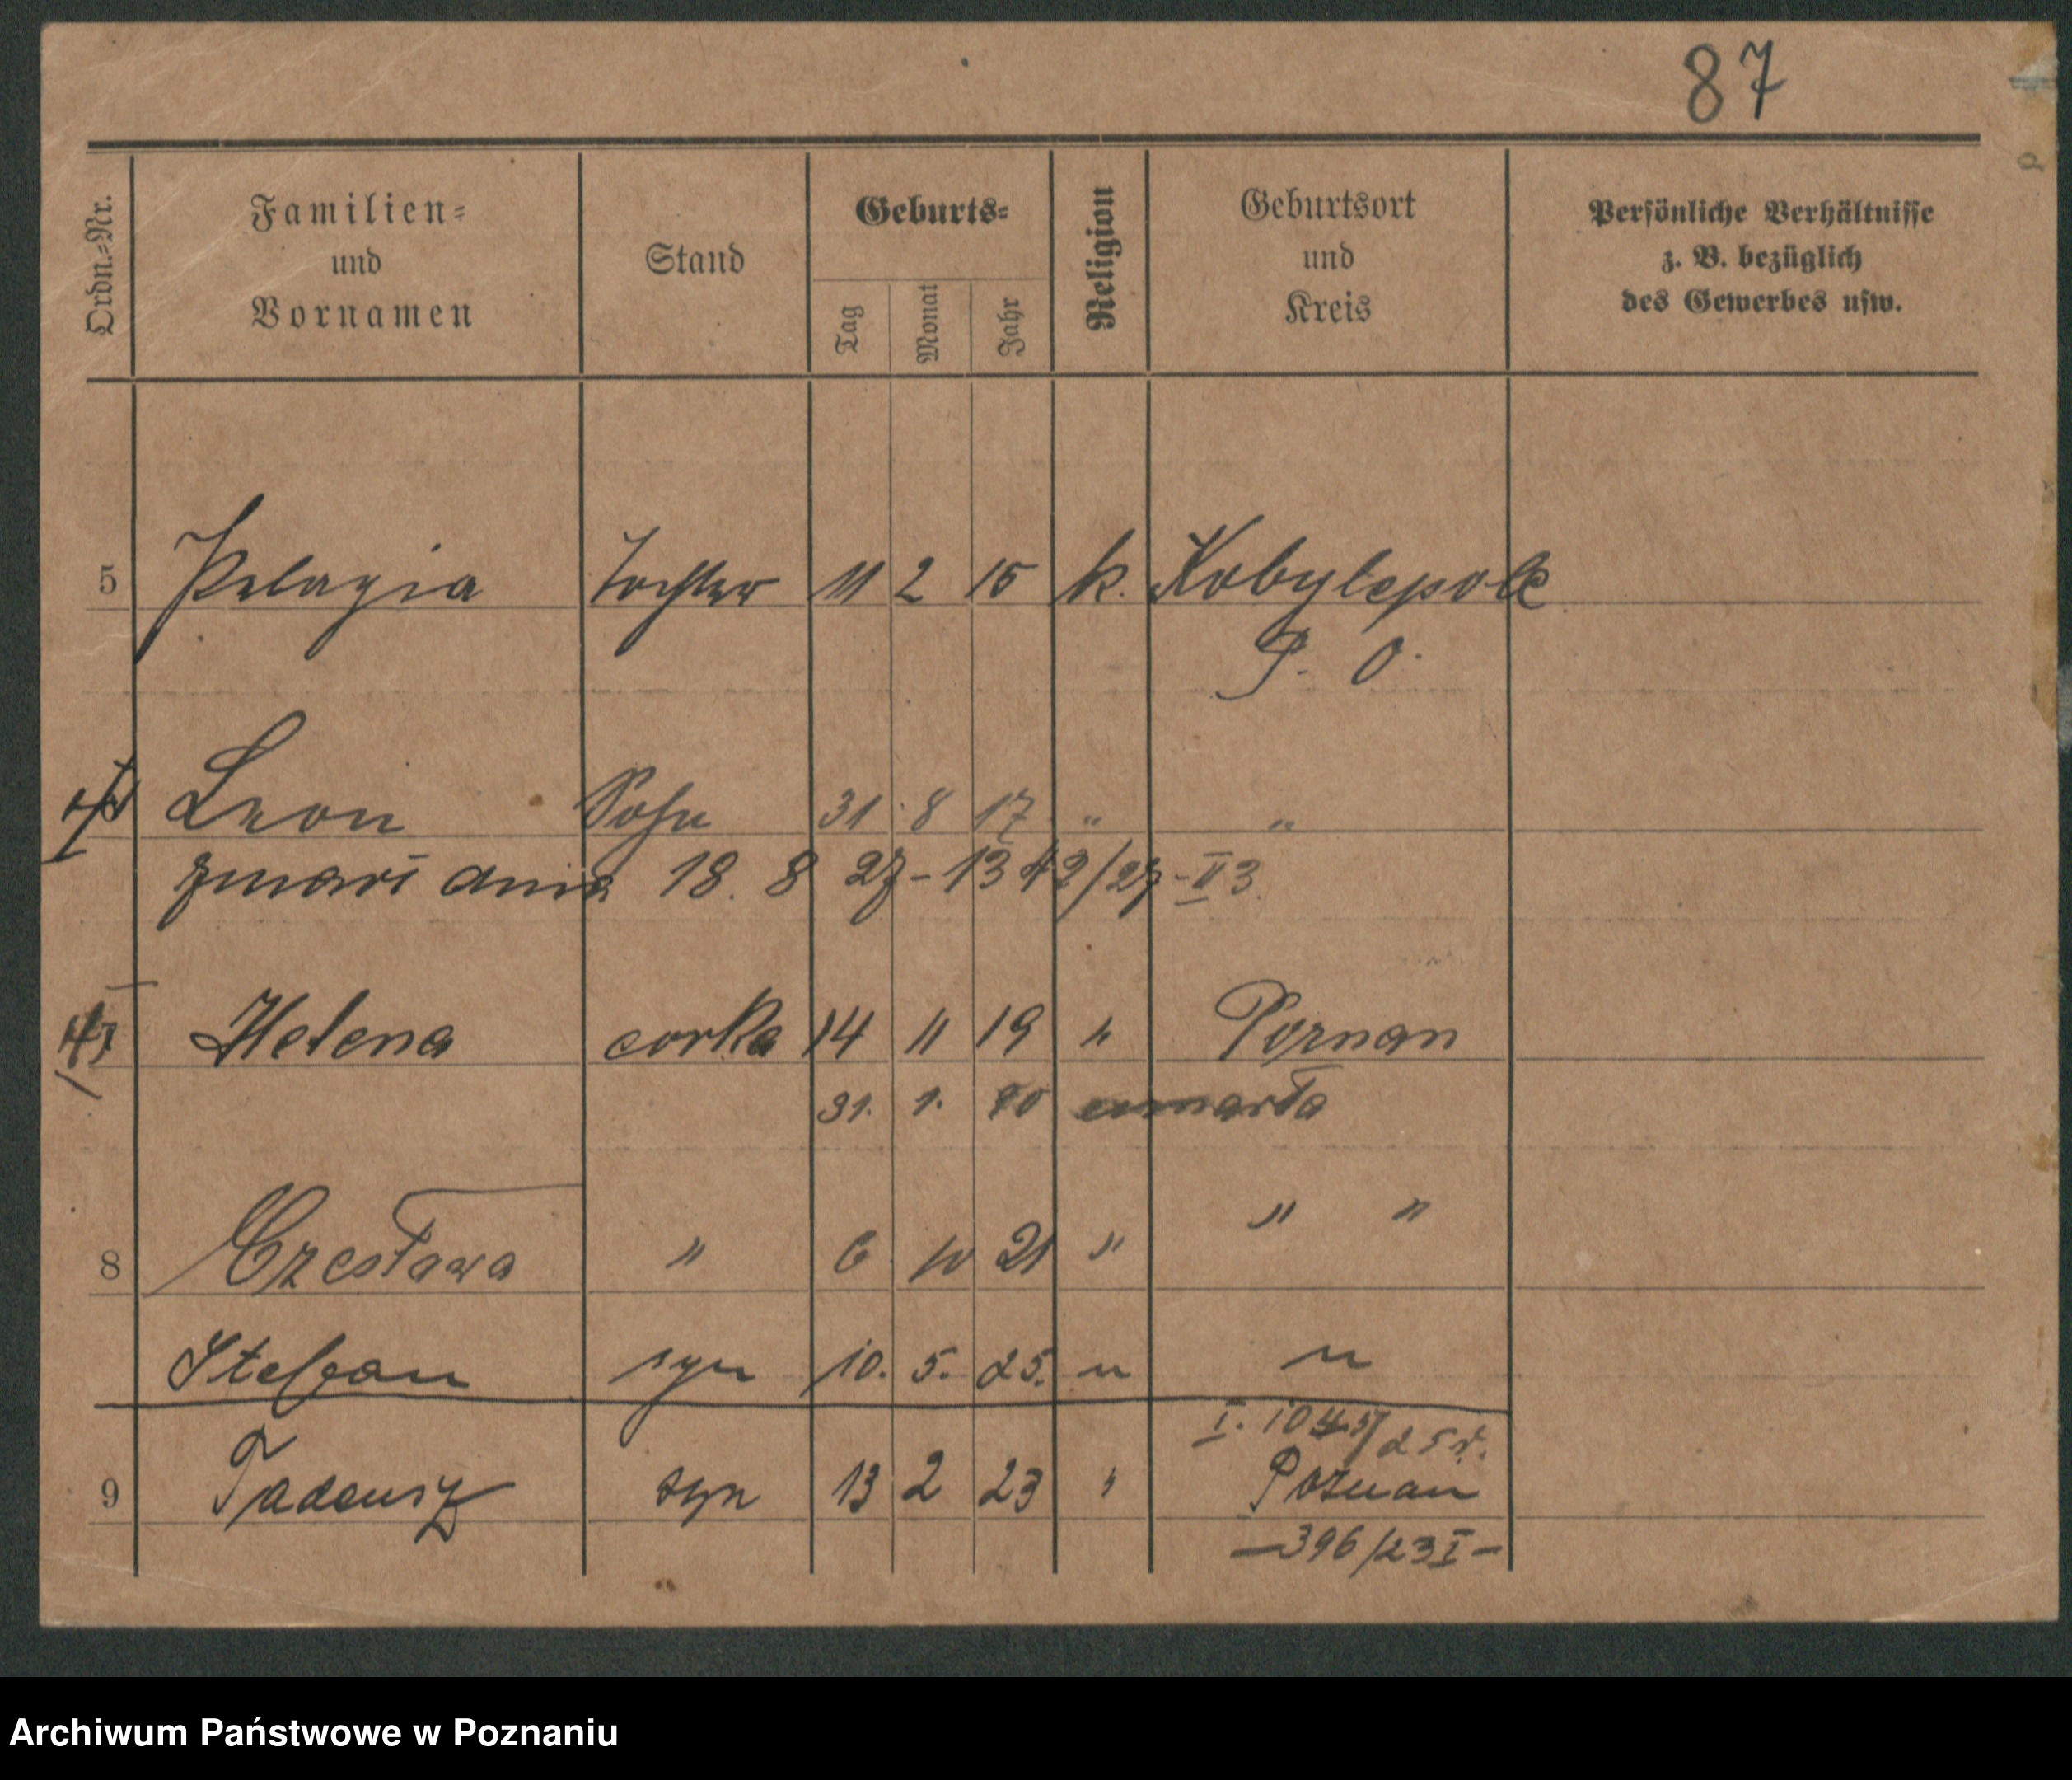 87
Ordn.=Nr.
Familien=
und
Vornamen
Stand
Geburts=
Tag
Monat
Jahr
Religion
Geburtsort
und
Kreis
Persönliche Verhältnisse
z. B. bezüglich
des Gewerbes usw.
5 Pelagia Tochter 11 2 15 k. Kobylepole
P. O.
Leon Sohn 31 8 17 " "
zmarł dnia 18. 8 27 - 1342/27 - II 3.
Helena corka 14 11 19 " Poznan
31. 1. 20 umarła
8 Czesława " 6 10 21 " " "
Stefan syn 10. 5. 25. " "
I. 1045/25 r.
9 Tadeusz syn 13 2 23 " Poznan
— 396/23 I —
Archiwum Państwowe w Poznaniu